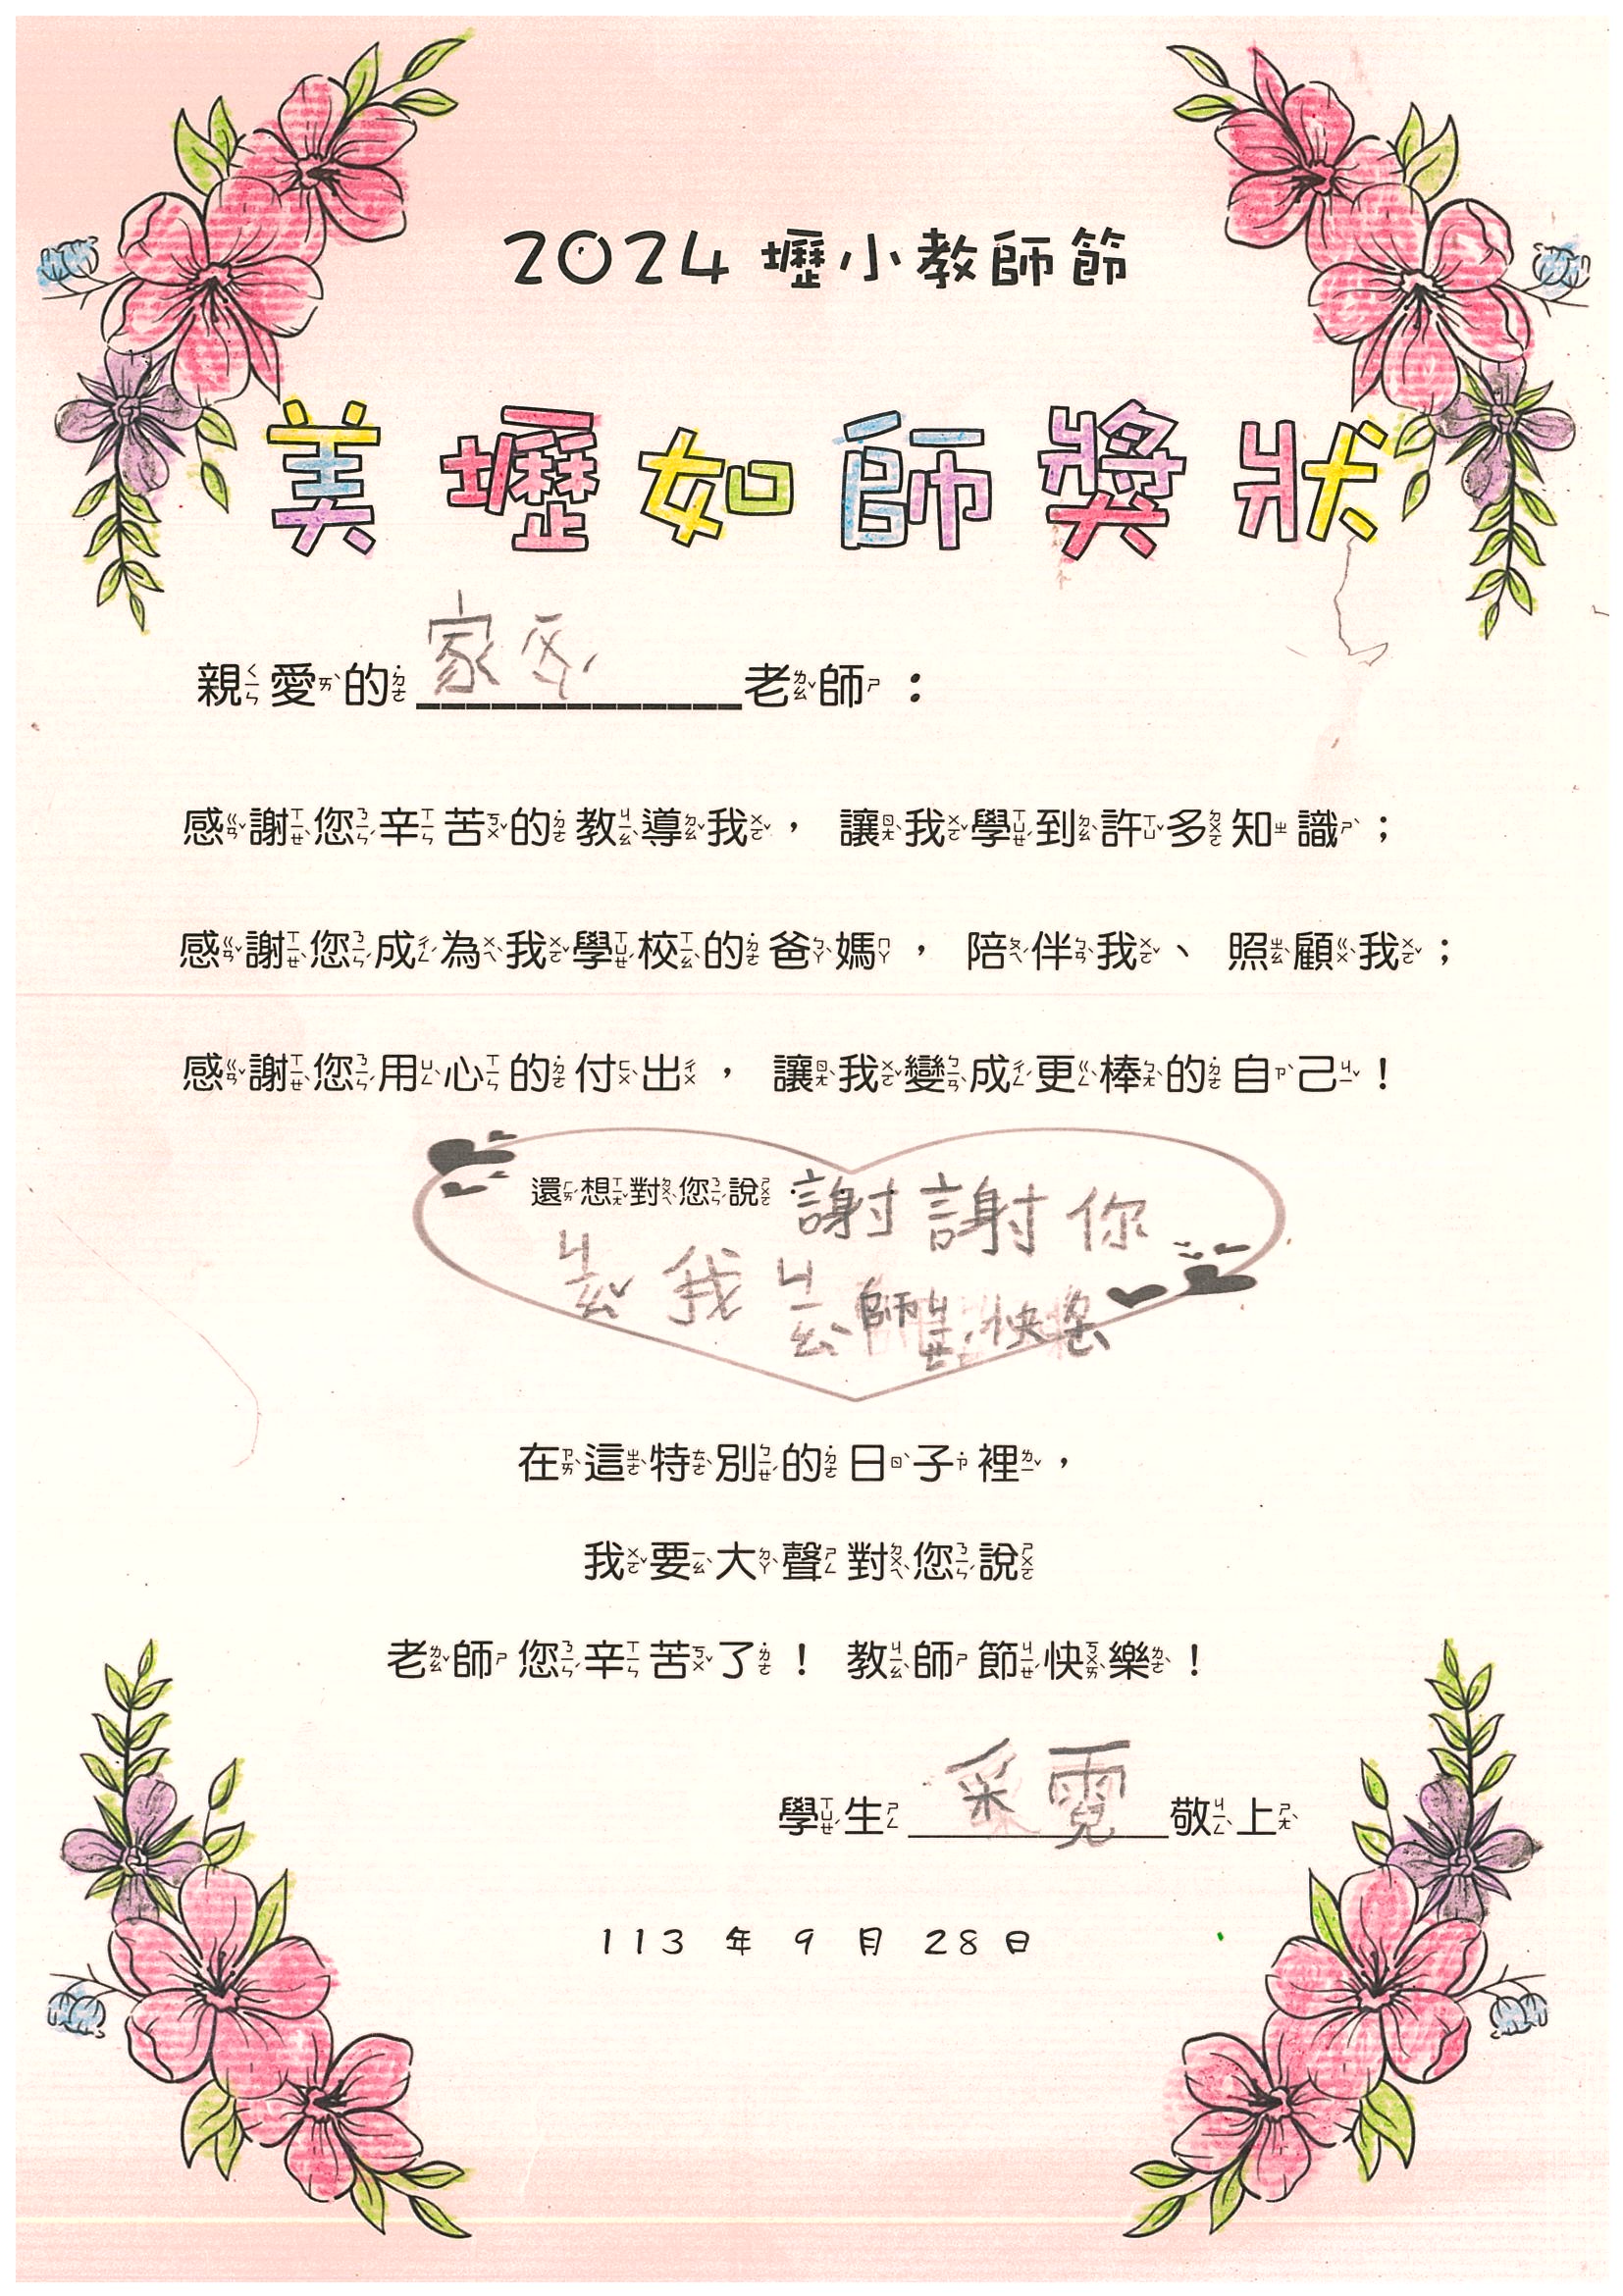 2024 壢小教師節
美壢如師獎狀
親愛的 家 老師：
感謝您辛苦的教導我，讓我學到許多知識；
感謝您成為我學校的爸媽，陪伴我、照顧我；
感謝您用心的付出，讓我變成更棒的自己！
還想對您說：謝謝你
ㄐㄠˇ我ㄐㄧㄠˋ師ㄐㄧㄝˊ快
在這特別的日子裡，
我要大聲對您說
老師您辛苦了！教師節快樂！
學生 采霓 敬上
113 年 9 月 28 日